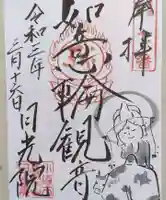 奉拝
如意輪観音
令和三年
三月十六日
月光院